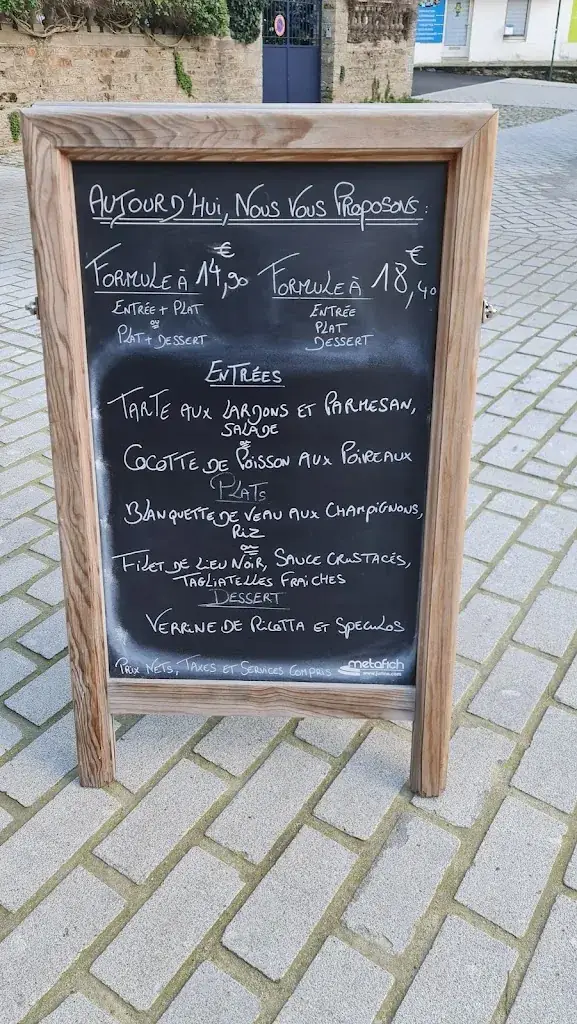 AUJOURD'HUI, NOUS VOUS PROPOSONS :
FORMULE À 14,90 €
ENTRÉE + PLAT
ou
PLAT + DESSERT
FORMULE À 18,40 €
ENTRÉE
PLAT
DESSERT
ENTRÉES
TARTE AUX LARDONS ET PARMESAN,
SALADE
ou
COCOTTE DE POISSON AUX POIREAUX
PLATS
BLANQUETTE DE VEAU AUX CHAMPIGNONS,
RIZ
ou
FILET DE LIEU NOIR, SAUCE CRUSTACÉS,
TAGLIATELLES FRAICHES
DESSERT
VERRINE DE RICOTTA ET SPECULOS
PRIX NETS, TAXES ET SERVICES COMPRIS
metafich